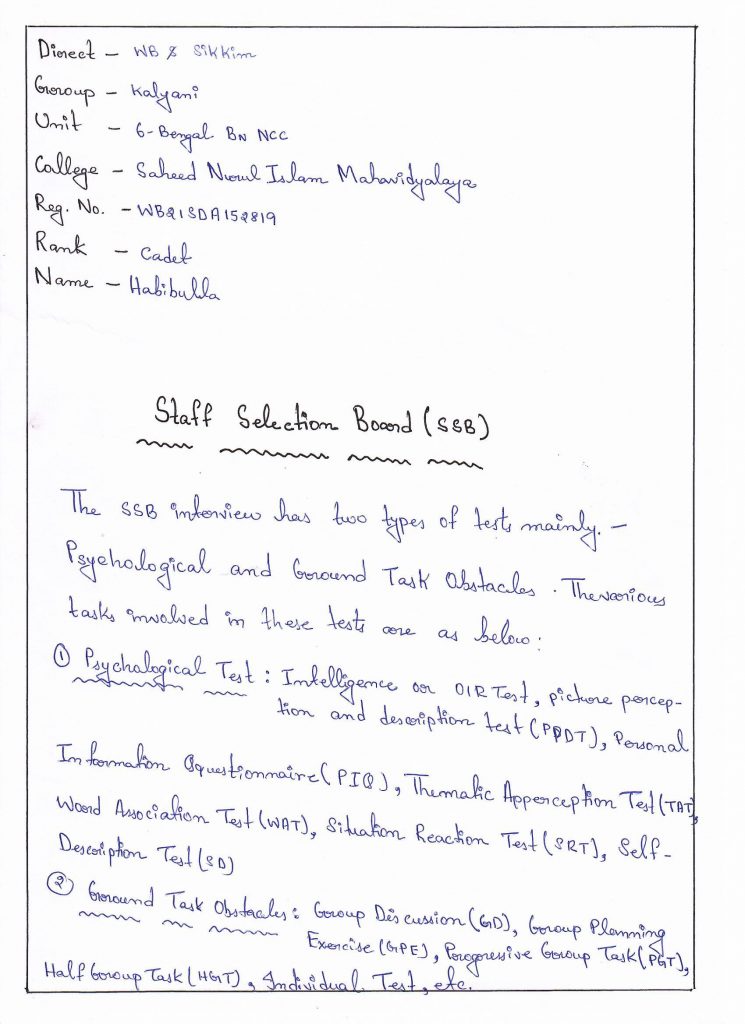 Direct - WB & Sikkim
Group - Kalyani
Unit - 6-Bengal BN NCC
College - Saheed Nurul Islam Mahavidyalaya
Reg. No. - WB21SDA152819
Rank - Cadet
Name - Habibulla
Staff Selection Board (SSB)
The SSB interview has two types of tests mainly. -
Psychological and Ground Task Obstacles. The various
tasks involved in these tests are as below:
① Psychological Test: Intelligence or OIR Test, picture percep-
tion and description test (PPDT), Personal
Information Questionnaire (PIQ), Thematic Apperception Test (TAT),
Word Association Test (WAT), Situation Reaction Test (SRT), Self-
Description Test (SD)
② Ground Task Obstacles: Group Discussion (GD), Group Planning
Exercise (GPE), Progressive Group Task (PGT),
Half Group Task (HGT), Individual Test, etc.